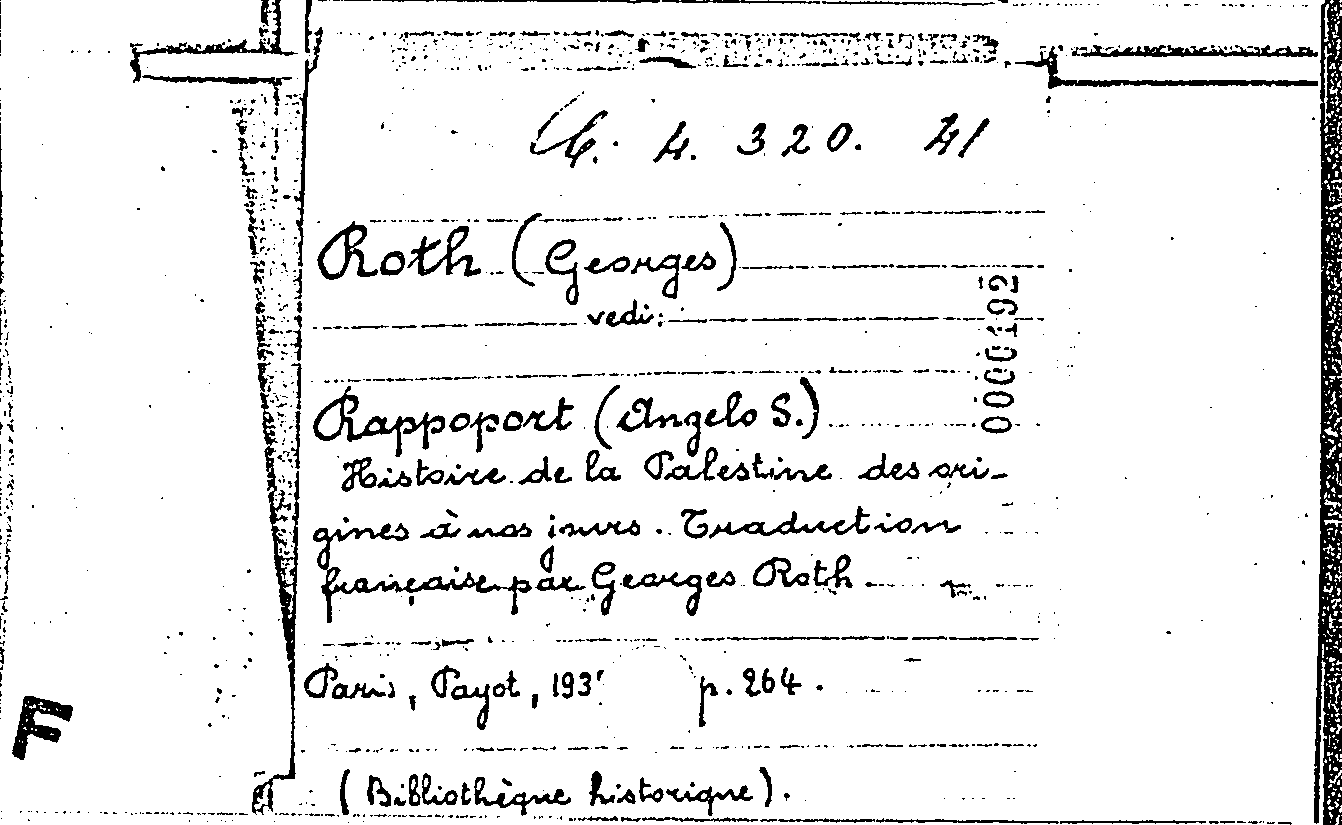 4. 320. 41
Roth (Georges)
vedi:
0000192
Rappoport (Angelo S.)
Histoire de la Palestine des ori-
gines à nos jours. Traduction
française par Georges Roth.
Paris, Payot, 193 p. 264.
F
(Bibliothèque historique).